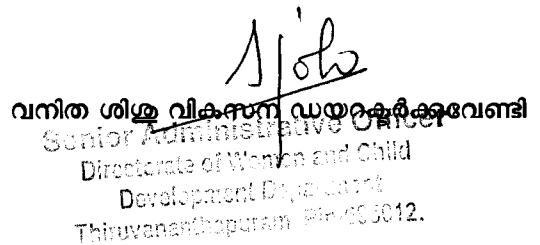 വനിത ശിശു വികസന ഡയറക്ടർക്കുവേണ്ടി
Senior Administrative Officer
Directorate of Women and Child
Development Department
Thiruvananthapuram Pin-695012.